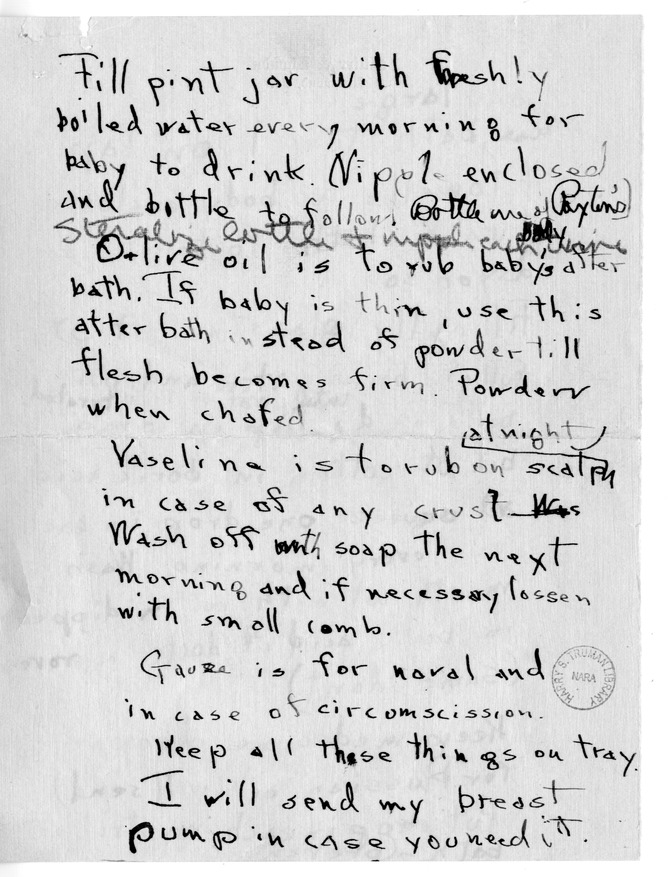 Fill pint jar with freshly
boiled water every morning for
baby to drink. Nipple enclosed
and bottle to follow. Bottle Paxton's
Steralize bottle & nipple each time
Olive oil is to rub baby's after
baby
bath. If baby is thin, use this
after bath instead of powder till
flesh becomes firm. Powder
when chafed.
at night
Vaseline is to rub on scalp
in case of any crust Was
Wash off with soap the next
morning and if necessay lossen
with small comb.
Gauze is for naval and
in case of circumscission.
Keep all these things on tray.
I will send my breast
pump in case you need it.
HARRY S. TRUMAN LIBRARY
NARA